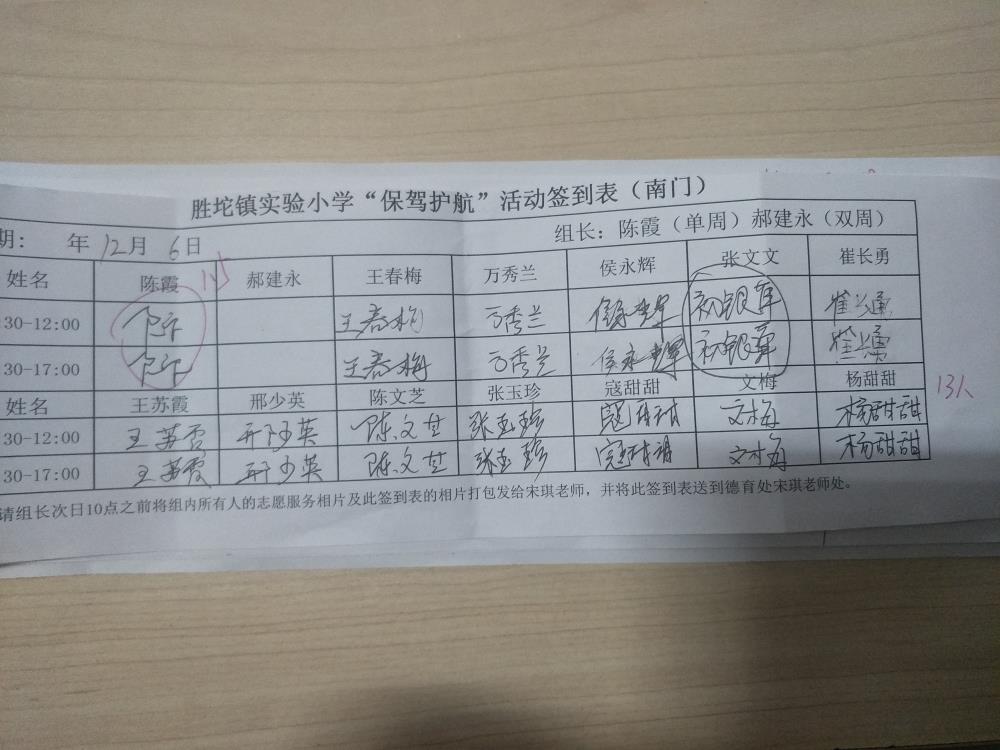 胜坨镇实验小学“保驾护航”活动签到表（南门）
期： 年 12月 6日 组长：陈霞（单周）郝建永（双周）
姓名 陈霞 郝建永 王春梅 万秀兰 侯永辉 张文文 崔长勇
:30-12:00 王春梅 万秀兰 初银军
30-17:00 王春梅 万秀兰 侯永辉 初银军 崔长勇
姓名 王苏霞 邢少英 陈文芝 张玉珍 寇甜甜 文梅 杨甜甜 13人
30-12:00 王苏霞 邢少英 陈文芝 张玉珍 寇甜甜 文梅 杨甜甜
30-17:00 王苏霞 邢少英 陈文芝 张玉珍 寇甜甜 文梅 杨甜甜
请组长次日10点之前将组内所有人的志愿服务相片及此签到表的相片打包发给宋琪老师，并将此签到表送到德育处宋琪老师处。